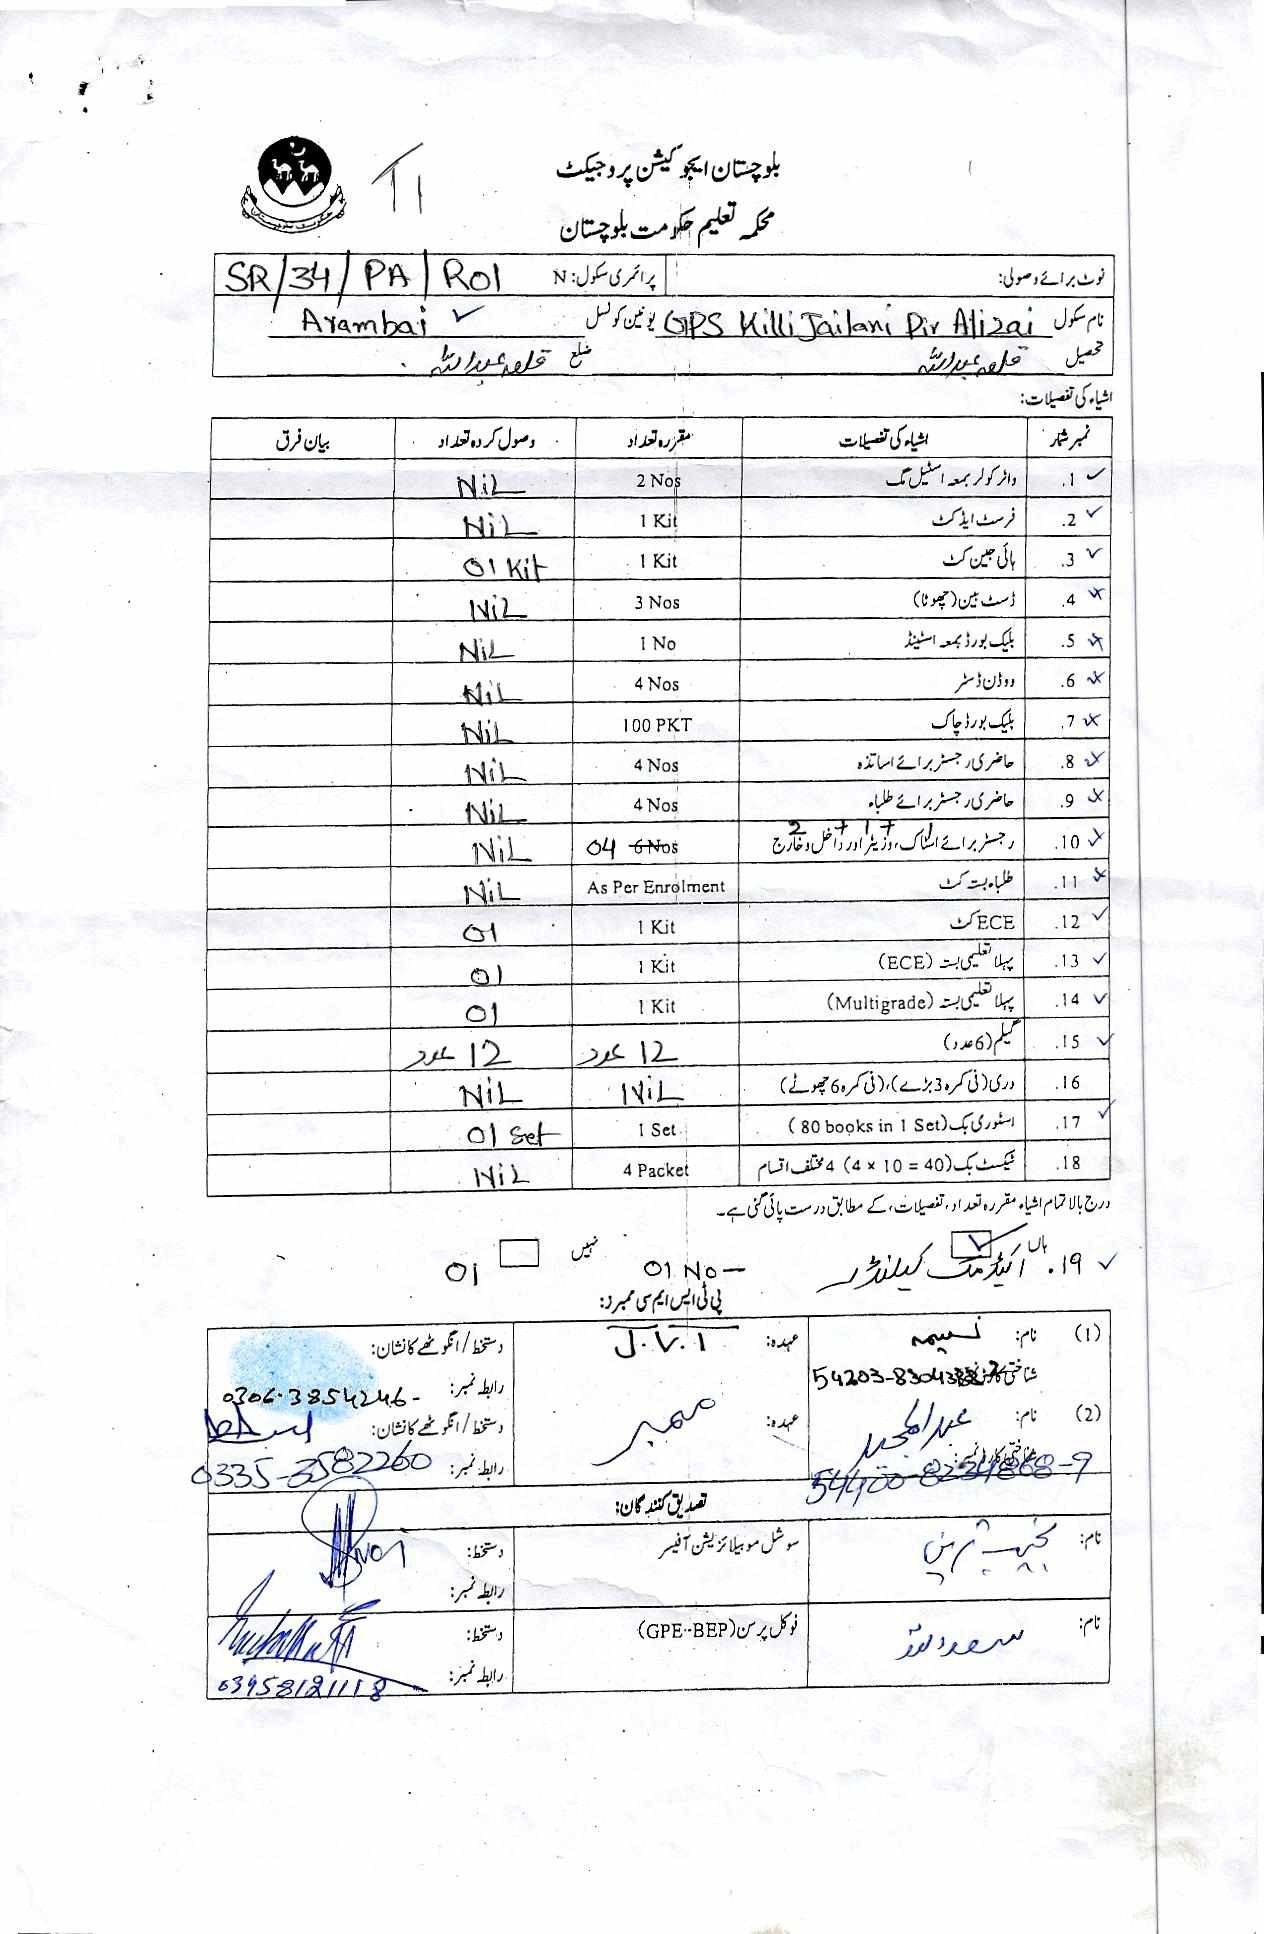 بلوچستان ایجوکیشن پروجیکٹ
محکمہ تعلیم حکومت بلوچستان
نوٹ برائے وصولی: پرائمری سکول: N SR/34/PA/R01
نام سکول GPS Killi Jailani Pir Alizai یونین کونسل Arambai
تحصیل قلعہ عبداللہ ضلع قلعہ عبداللہ
اشیاء کی تفصیلات:
نمبر شمار اشیاء کی تفصیلات مقررہ تعداد وصول کردہ تعداد بیان فرق
1. واٹر کولر بمعہ اسٹیل مگ 2 Nos NiL
2. فرسٹ ایڈ کٹ 1 Kit NiL
3. ہائی جین کٹ 1 Kit 01 Kit
4. ڈسٹ بین (چھوٹا) 3 Nos NiL
5. بلیک بورڈ بمعہ اسٹینڈ 1 No NiL
6. ووڈن ڈسٹر 4 Nos NiL
7. بلیک بورڈ چاک 100 PKT NiL
8. حاضری رجسٹر برائے اساتذہ 4 Nos NiL
9. حاضری رجسٹر برائے طلباء 4 Nos NiL
10. رجسٹر برائے اسٹاک، وزیٹر اور داخل و خارج 1 + 1 + 2 04 6 Nos NiL
11. طلباء بستہ کٹ As Per Enrolment NiL
12. ECE کٹ 1 Kit 01
13. پہلا تعلیمی بستہ (ECE) 1 Kit 01
14. پہلا تعلیمی بستہ (Multigrade) 1 Kit 01
15. گلیم (6 عدد) 12 عدد 12 عدد
16. دری (فی کمرہ 3 بڑے)، (فی کمرہ 6 چھوٹے) NiL NiL
17. اسٹوری بک (80 books in 1 Set) 1 Set 01 Set
18. ٹیکسٹ بک (4 × 10 = 40) 4 مختلف اقسام 4 Packet NiL
درج بالا تمام اشیاء مقررہ تعداد، تفصیلات، کے مطابق درست پائی گئی ہے۔
ہاں نہیں
19. اکیڈمک کیلنڈر 01 No – 01
پی ٹی ایس ایم سی ممبرز:
(1) نام: نسیمہ عہدہ: J.V.T دستخط/انگوٹھے کا نشان:
رابطہ نمبر: 0306-3854246
(2) نام: عبدالمجید عہدہ: ممبر دستخط/انگوٹھے کا نشان:
شناختی کارڈ نمبر: 54400-8234868-9 رابطہ نمبر: 0335-3582260
تصدیق کنندگان:
نام: سوشل موبیلائزیشن آفیسر دستخط:
رابطہ نمبر:
نام: فوکل پرسن (GPE-BEP) دستخط:
رابطہ نمبر: 03958121118